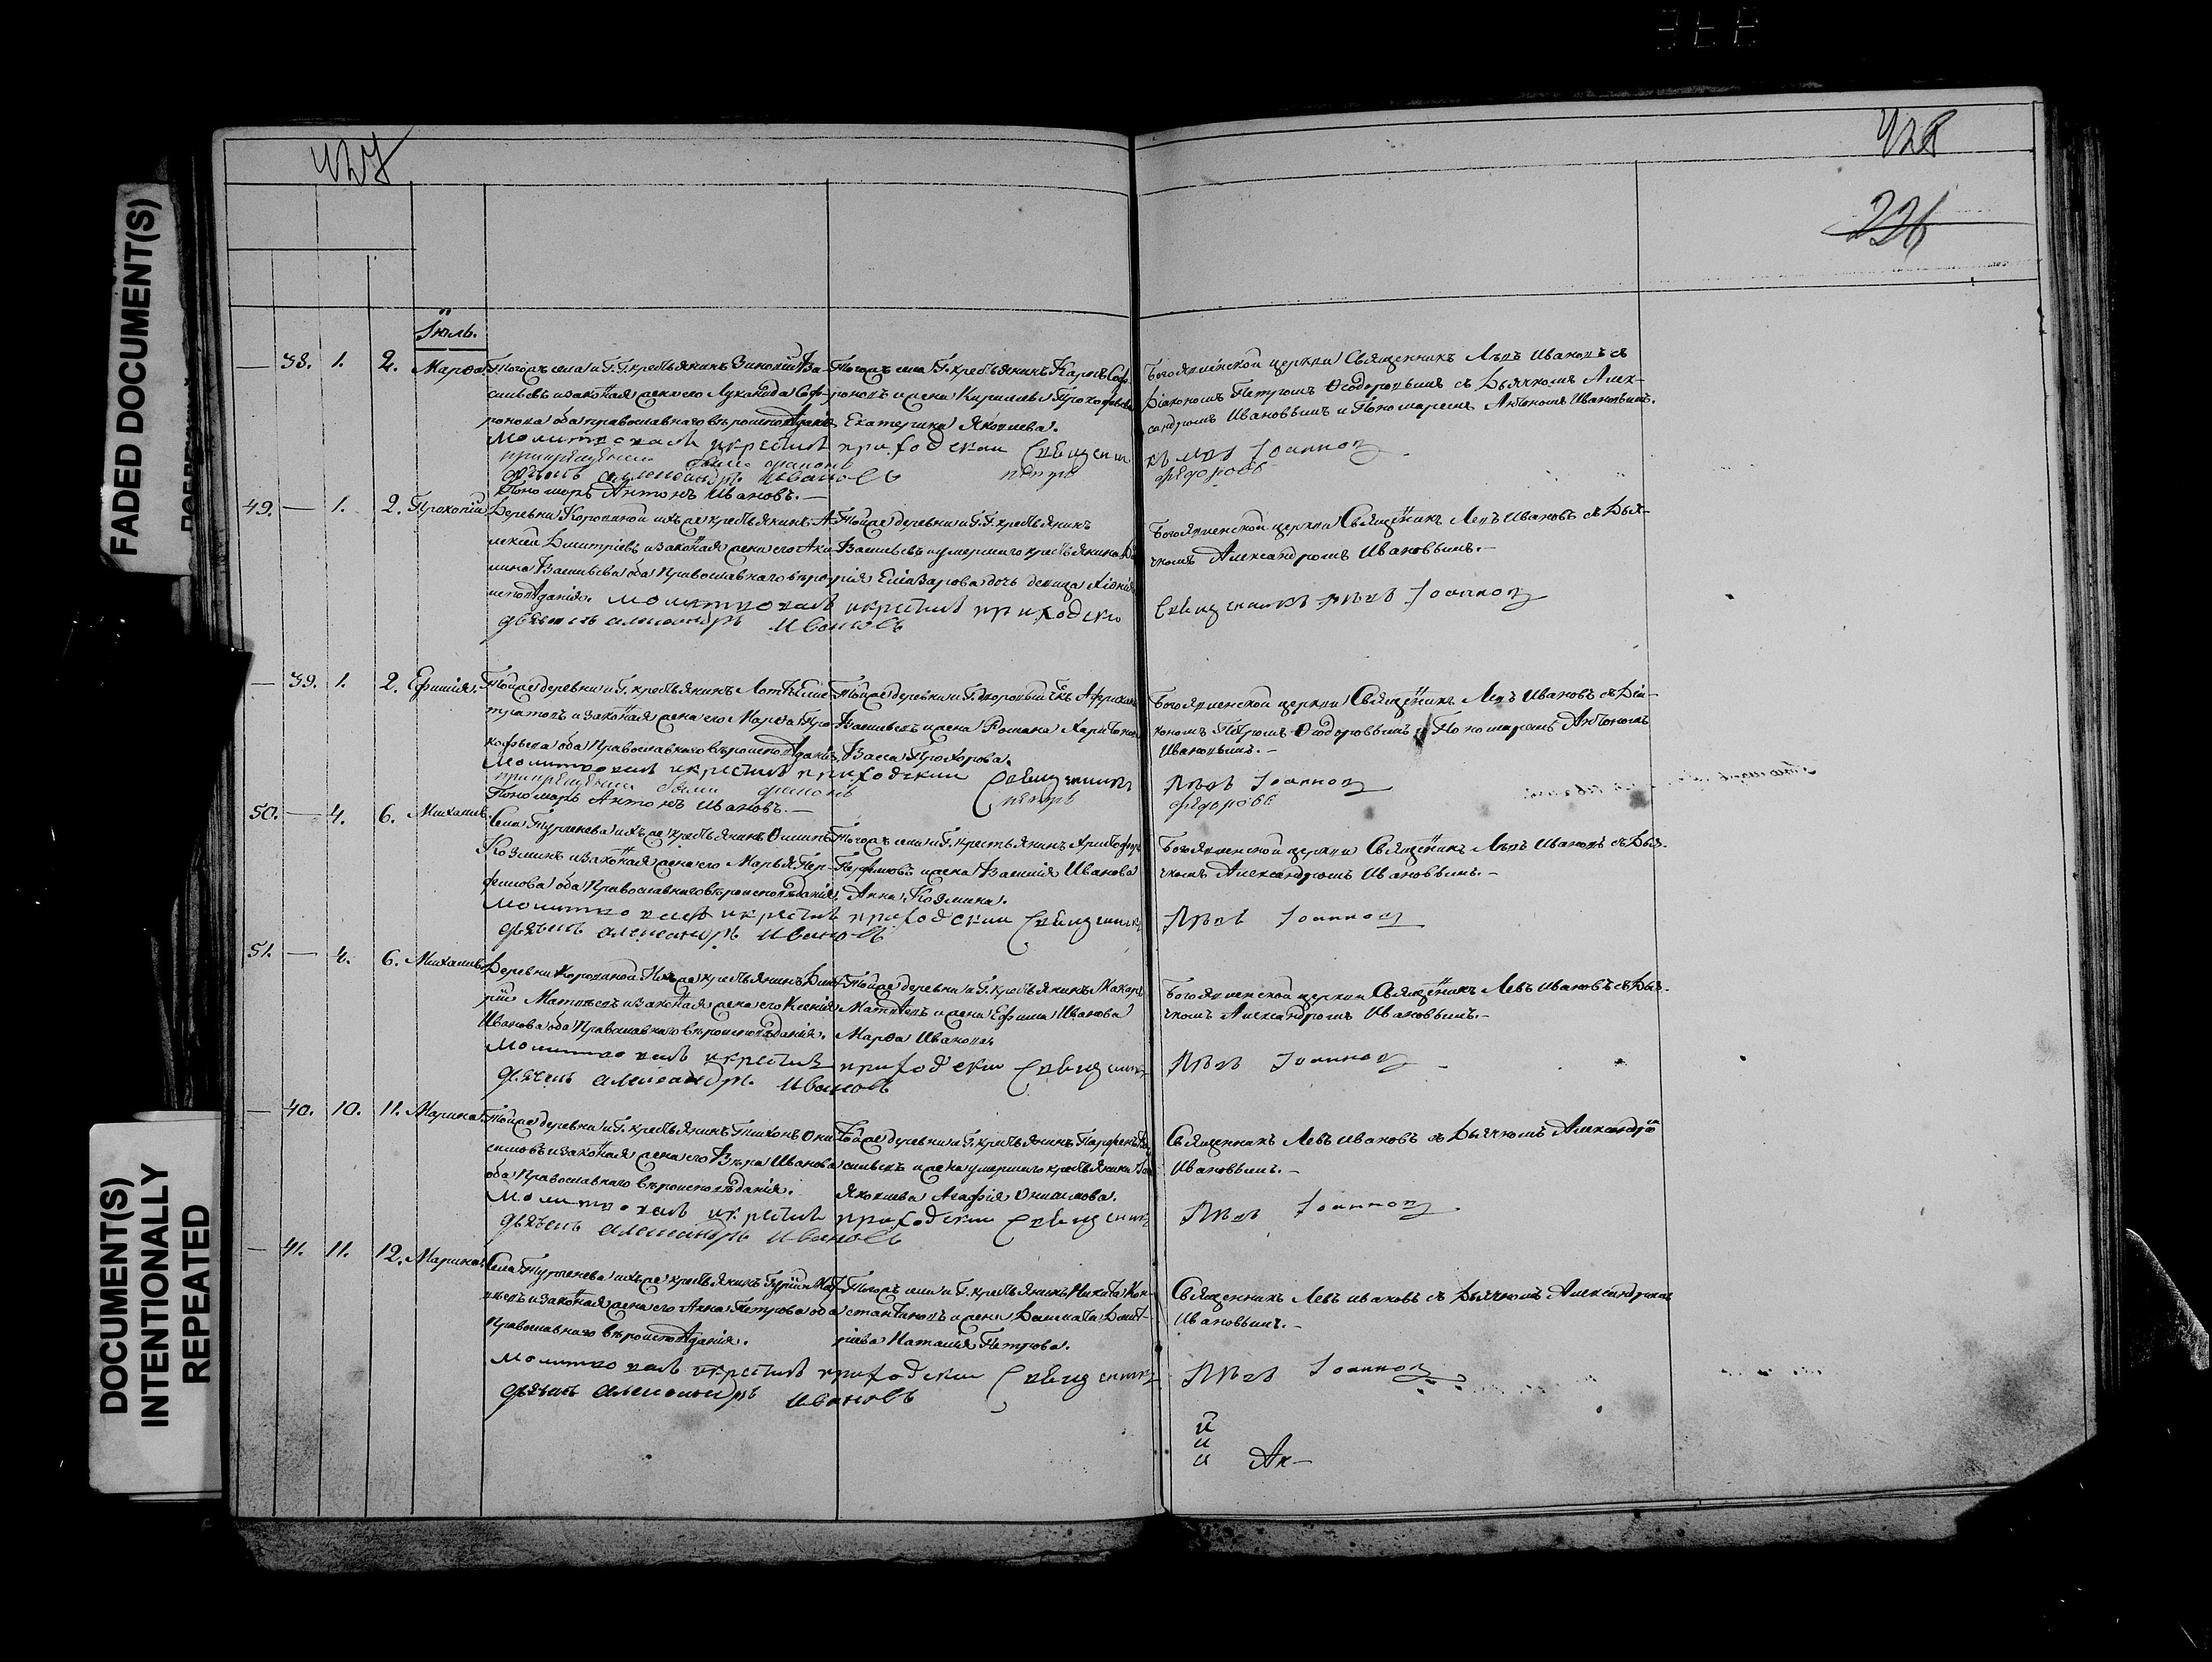 FADED DOCUMENT(S)
DOCUMENT(S)
INTENTIONALLY
REPEATED
427
428
226
Іюль.
— 38. 1. 2. Марѳа
Тогожъ села и Г. Г. крестьянинъ Зиновій Ва-
сильевъ и законная жена его Лукайда Соф-
ронова оба православнаго вѣроисповѣданія
Тогожъ села Г. крестьянинъ Карпъ Соф-
роновъ и жена Кириллы Прокофьева
Екатерина Яковлева.
Богоявленской церкви Священникъ Левъ Ивановъ съ
Діакономъ Петромъ Ѳеодоровымъ съ Дьячкомъ Алек-
сандромъ Ивановымъ и Пономаремъ Антономъ Ивановымъ.
молитвовалъ и крестилъ приходскій священни-
къ Левъ Іоанновъ
при крещеніи были діаконъ Петръ Федоровъ
дьячекъ александръ Ивановъ
Пономарь Антонъ Ивановъ.—
49. — 1. 2. Прокопій
Деревни Корованой ихъ же крестьянинъ А-
лексѣй Дмитріевъ и законная жена его Аку-
лина Васильева оба Православнаго вѣро-
исповѣданія.
Тойже деревни и Г. Г. крестьянинъ
Васильевъ и умершаго крестьянина
Елиазарова дочь девица
Богоявленской церкви Священникъ Левъ Ивановъ съ Дья-
чкомъ Александромъ Ивановымъ.—
молитвовалъ и крестилъ приходскій
Священникъ Левъ Іоанновъ
дьячекъ александръ Ивановъ
— 39. 1. 2. Ефимія.
Тойже деревни и Г. крестьянинъ
и законная жена его Марѳа Про-
кофьева оба Православнаго вѣроисповѣданія
Тойже деревни и Г. дворовый
Васильевъ и жена Романа Харитонова
Васса Прохорова.
Богоявленской церкви Священникъ Левъ Ивановъ съ Діа-
кономъ Петромъ Ѳеодоровымъ и Пономаремъ Антономъ
Ивановымъ.—
молитвовалъ и крестилъ приходскій священникъ
Левъ Іоанновъ
при крещеніи были діаконъ Петръ Федоровъ
Пономарь Антонъ Ивановъ.—
50. — 4. 6. Михаилъ.
Села Тургенева ихъ же крестьянинъ Осипъ
Козминъ и законная жена его Марья Пер-
филова оба Православнаго вѣроисповѣданія.
Тогожъ села и Г. крестьянинъ Христофоръ
Перфиловъ и жена Василія Иванова
Анна Козмина.
Богоявленской церкви Священникъ Левъ Ивановъ съ Дья-
чкомъ Александромъ Ивановымъ.—
молитвовалъ и крестилъ приходскій священникъ
Левъ Іоанновъ
дьячекъ александръ Ивановъ
51. — 4. 6. Михаилъ.
Деревни Корованой Ихъ же крестьянинъ Дмит-
рій Матвѣевъ и законная жена его Ксенія
Иванова оба Православнаго вѣроисповѣданія.
Тойже деревни и Г. крестьянинъ Макаръ
Матвѣевъ и жена Ефима Иванова
Марѳа Иванова.
Богоявленской церкви Священникъ Левъ Ивановъ съ Дья-
чкомъ Александромъ Ивановымъ.—
молитвовалъ и крестилъ приходскій священникъ
Левъ Іоанновъ
дьячекъ александръ Ивановъ
— 40. 10. 11. Марина.
Тойже деревни и Г. крестьянинъ Тихонъ Они-
симовъ и законная жена его Вѣра Иванова
оба Православнаго вѣроисповѣданія.
Тойже деревни и Г. крестьянинъ Парфенъ Ва-
сильевъ и жена умершаго крестьянина
Яковлева Агафія Онисимова.
Священникъ Левъ Ивановъ съ Дьячкомъ Александромъ
Ивановымъ.—
молитвовалъ и крестилъ приходскій священникъ
Левъ Іоанновъ
дьячекъ александръ Ивановъ
— 41. 11. 12. Марина.
Села Тургенева ихъ же крестьянинъ Гурій Мат-
вѣевъ и законная жена его Анна Петрова оба
Православнаго вѣроисповѣданія.
Тогожъ села и Г. крестьянинъ Никита Кон-
стантиновъ и жена Дмит-
ріева Наталія Петрова.
Священникъ Левъ Ивановъ съ Дьячкомъ Александромъ
Ивановымъ.—
молитвовалъ и крестилъ приходскій священникъ
Левъ Іоанновъ
дьячекъ александръ Ивановъ